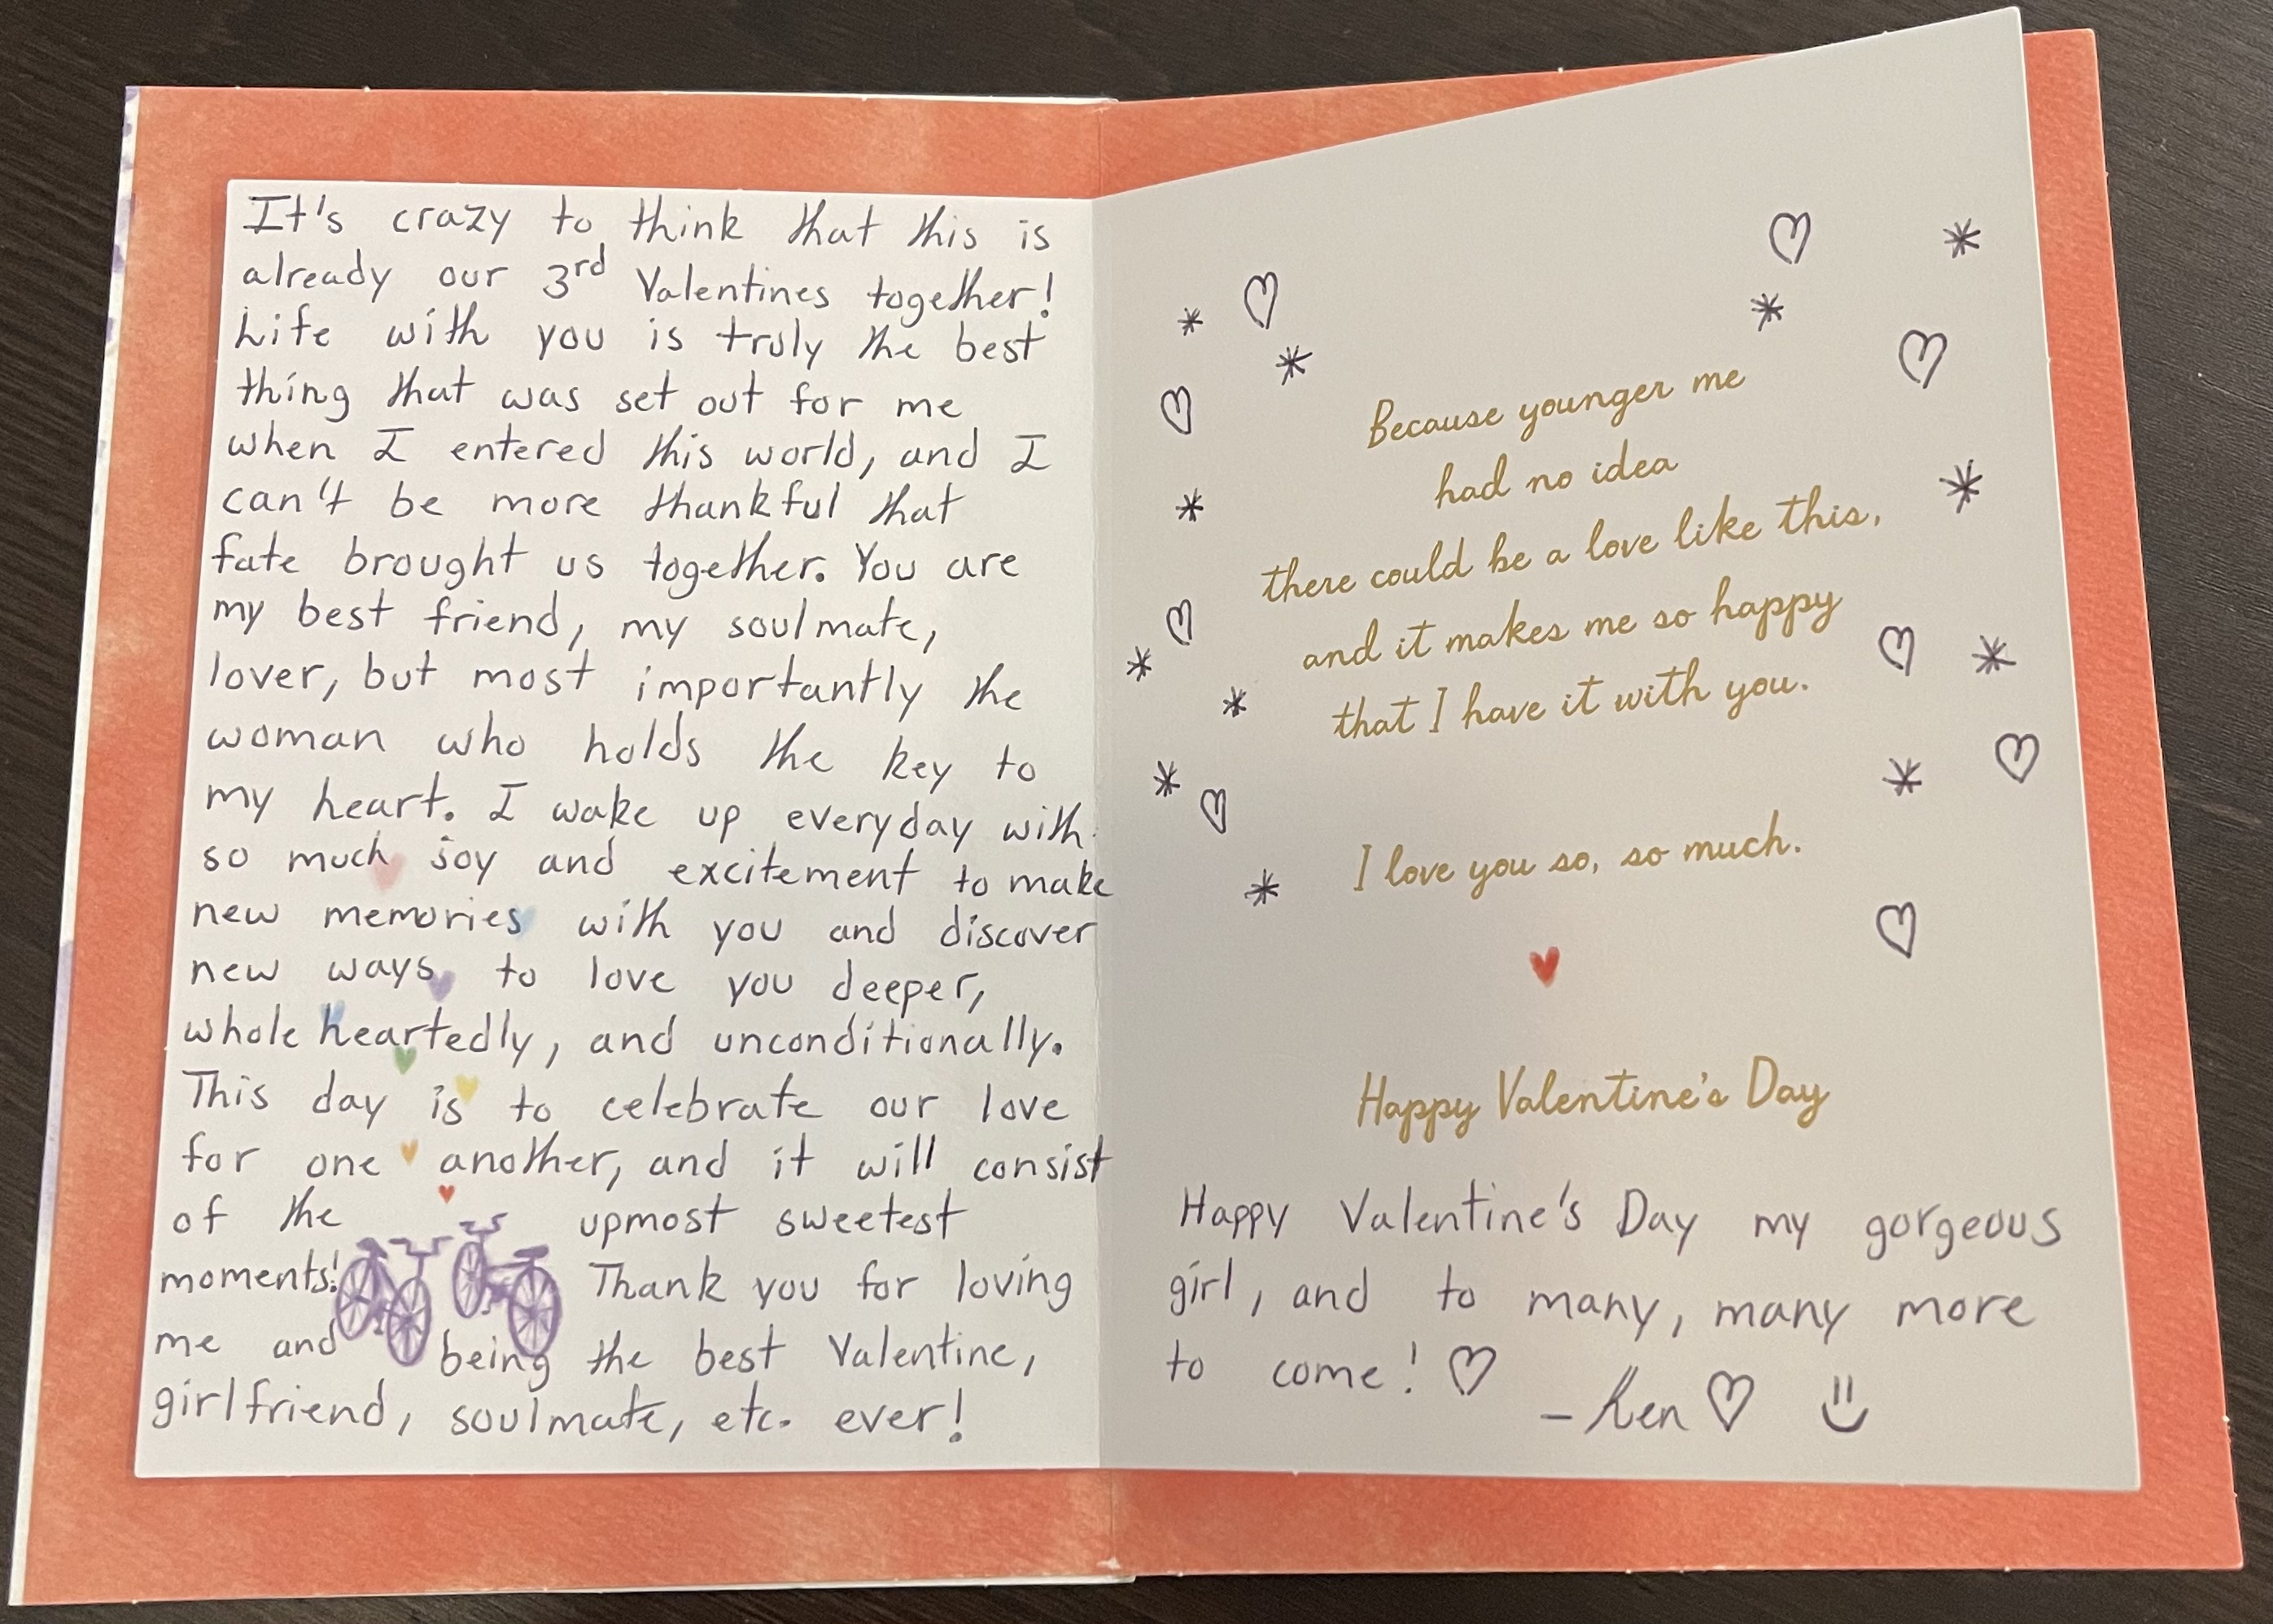 It's crazy to think that this is
already our 3rd Valentines together!
Life with you is truly the best
thing that was set out for me
when I entered this world, and I
can't be more thankful that
fate brought us together. You are
my best friend, my soulmate,
lover, but most importantly the
woman who holds the key to
my heart. I wake up everyday with
so much joy and excitement to make
new memories with you and discover
new ways to love you deeper,
whole heartedly, and unconditionally.
This day is to celebrate our love
for one another, and it will consist
of the upmost sweetest
moments! Thank you for loving
me and being the best Valentine,
girlfriend, soulmate, etc. ever!
Because younger me
had no idea
there could be a love like this,
and it makes me so happy
that I have it with you.
I love you so, so much.
Happy Valentine's Day
Happy Valentine's Day my gorgeous
girl, and to many, many more
to come! ♡
- Ken ♡ =)